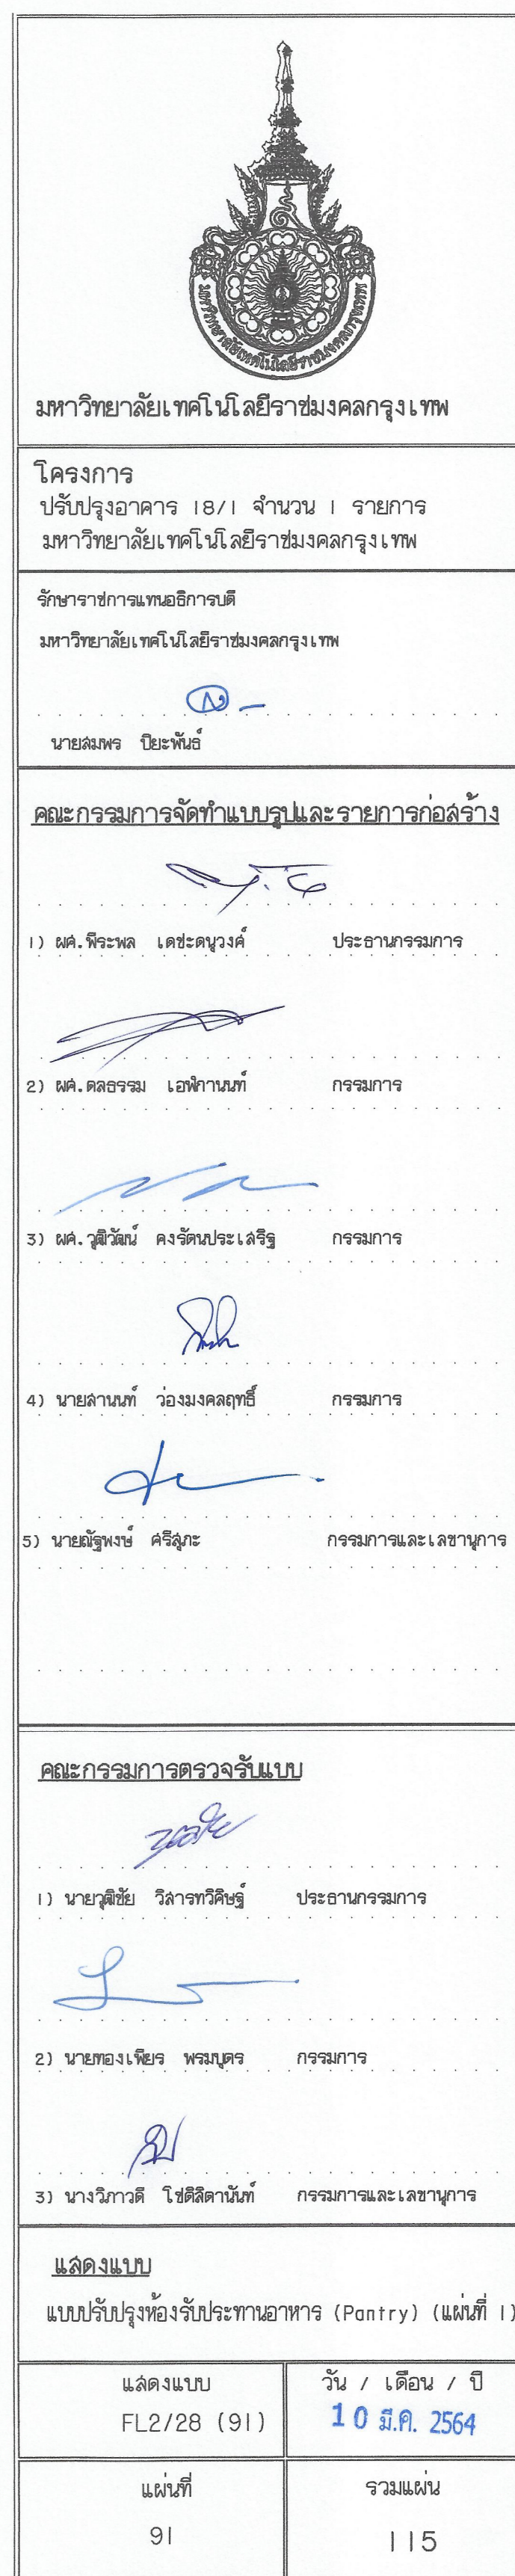 มหาวิทยาลัยเทคโนโลยีราชมงคลกรุงเทพ
มหาวิทยาลัยเทคโนโลยีราชมงคลกรุงเทพ
โครงการ
ปรับปรุงอาคาร 18/1 จำนวน 1 รายการ
มหาวิทยาลัยเทคโนโลยีราชมงคลกรุงเทพ
รักษาราชการแทนอธิการบดี
มหาวิทยาลัยเทคโนโลยีราชมงคลกรุงเทพ
นายสมพร ปิยะพันธ์
คณะกรรมการจัดทำแบบรูปและรายการก่อสร้าง
1) ผศ.พีระพล เดชะดนูวงค์ ประธานกรรมการ
2) ผศ.ดลธรรม เอฬกานนท์ กรรมการ
3) ผศ.วุฒิวัฒน์ คงรัตนประเสริฐ กรรมการ
4) นายสานนท์ ว่องมงคลฤทธิ์ กรรมการ
5) นายณัฐพงษ์ ศรีสุภะ กรรมการและเลขานุการ
คณะกรรมการตรวจรับแบบ
1) นายวุฒิชัย วิสารทวิศิษฐ์ ประธานกรรมการ
2) นายทองเพียร พรมบุตร กรรมการ
3) นางวิภาวดี โชติสิตานันท์ กรรมการและเลขานุการ
แสดงแบบ
แบบปรับปรุงห้องรับประทานอาหาร (Pantry) (แผ่นที่ 1)
แสดงแบบ วัน / เดือน / ปี
FL2/28 (91) 10 มี.ค. 2564
แผ่นที่ รวมแผ่น
91 115